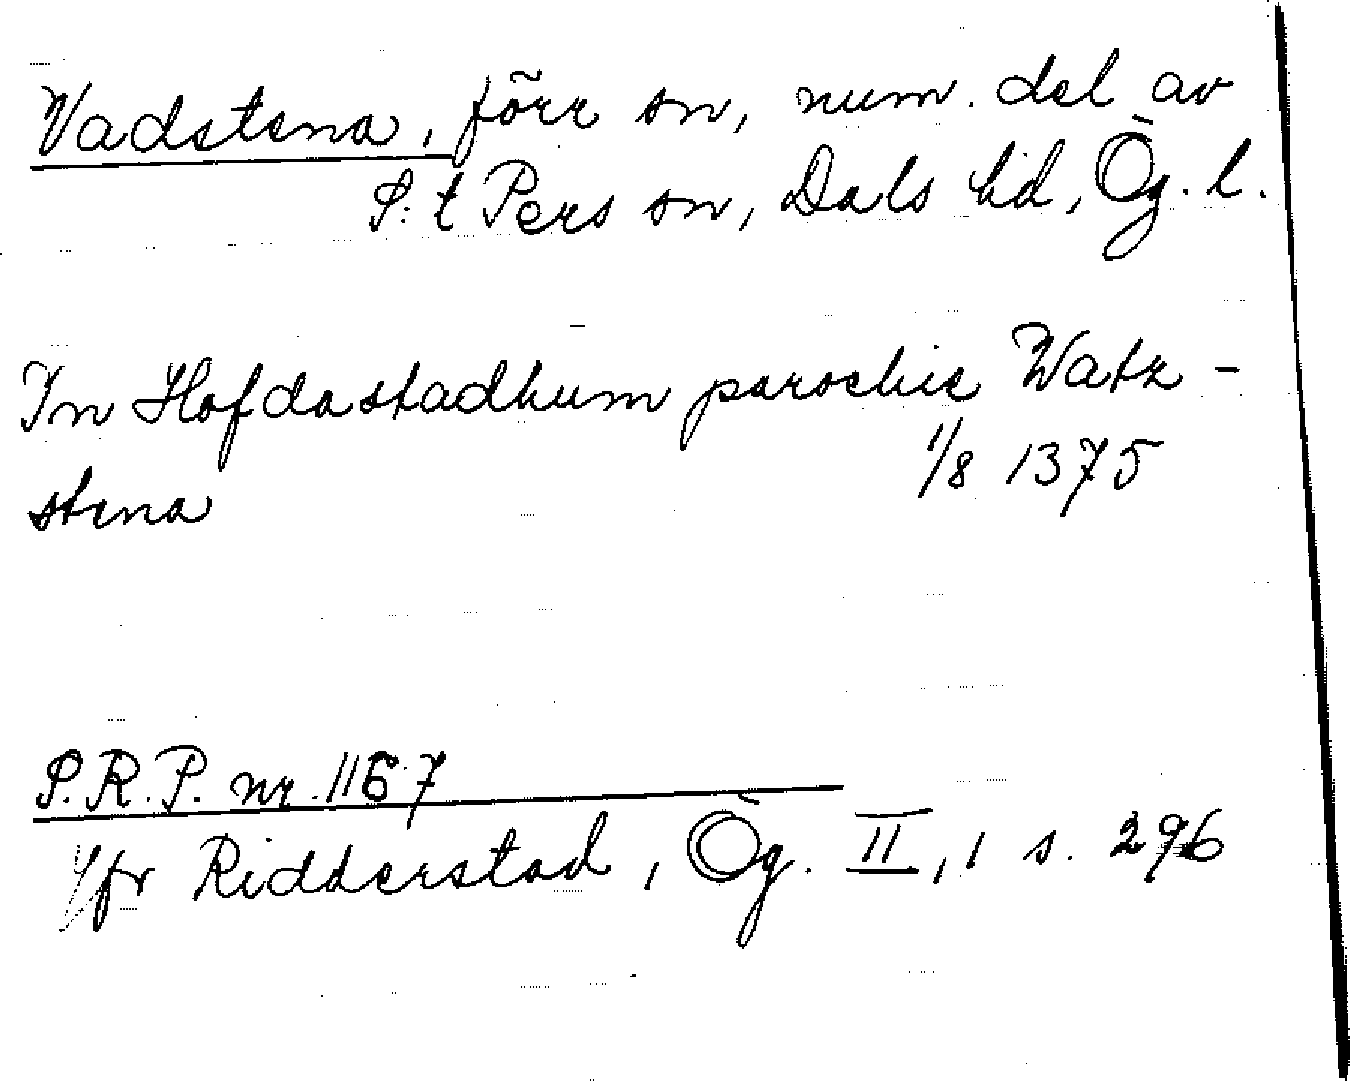 Vadstena, förr sn, num. del av
S:t Pers sn, Dals hd, Ög. l.
In Hofdastadhum parochie Watz-
stena 1/8 1375
S.R.P. nr. 1167
Jfr Ridderstad, Ög. II, 1 s. 296